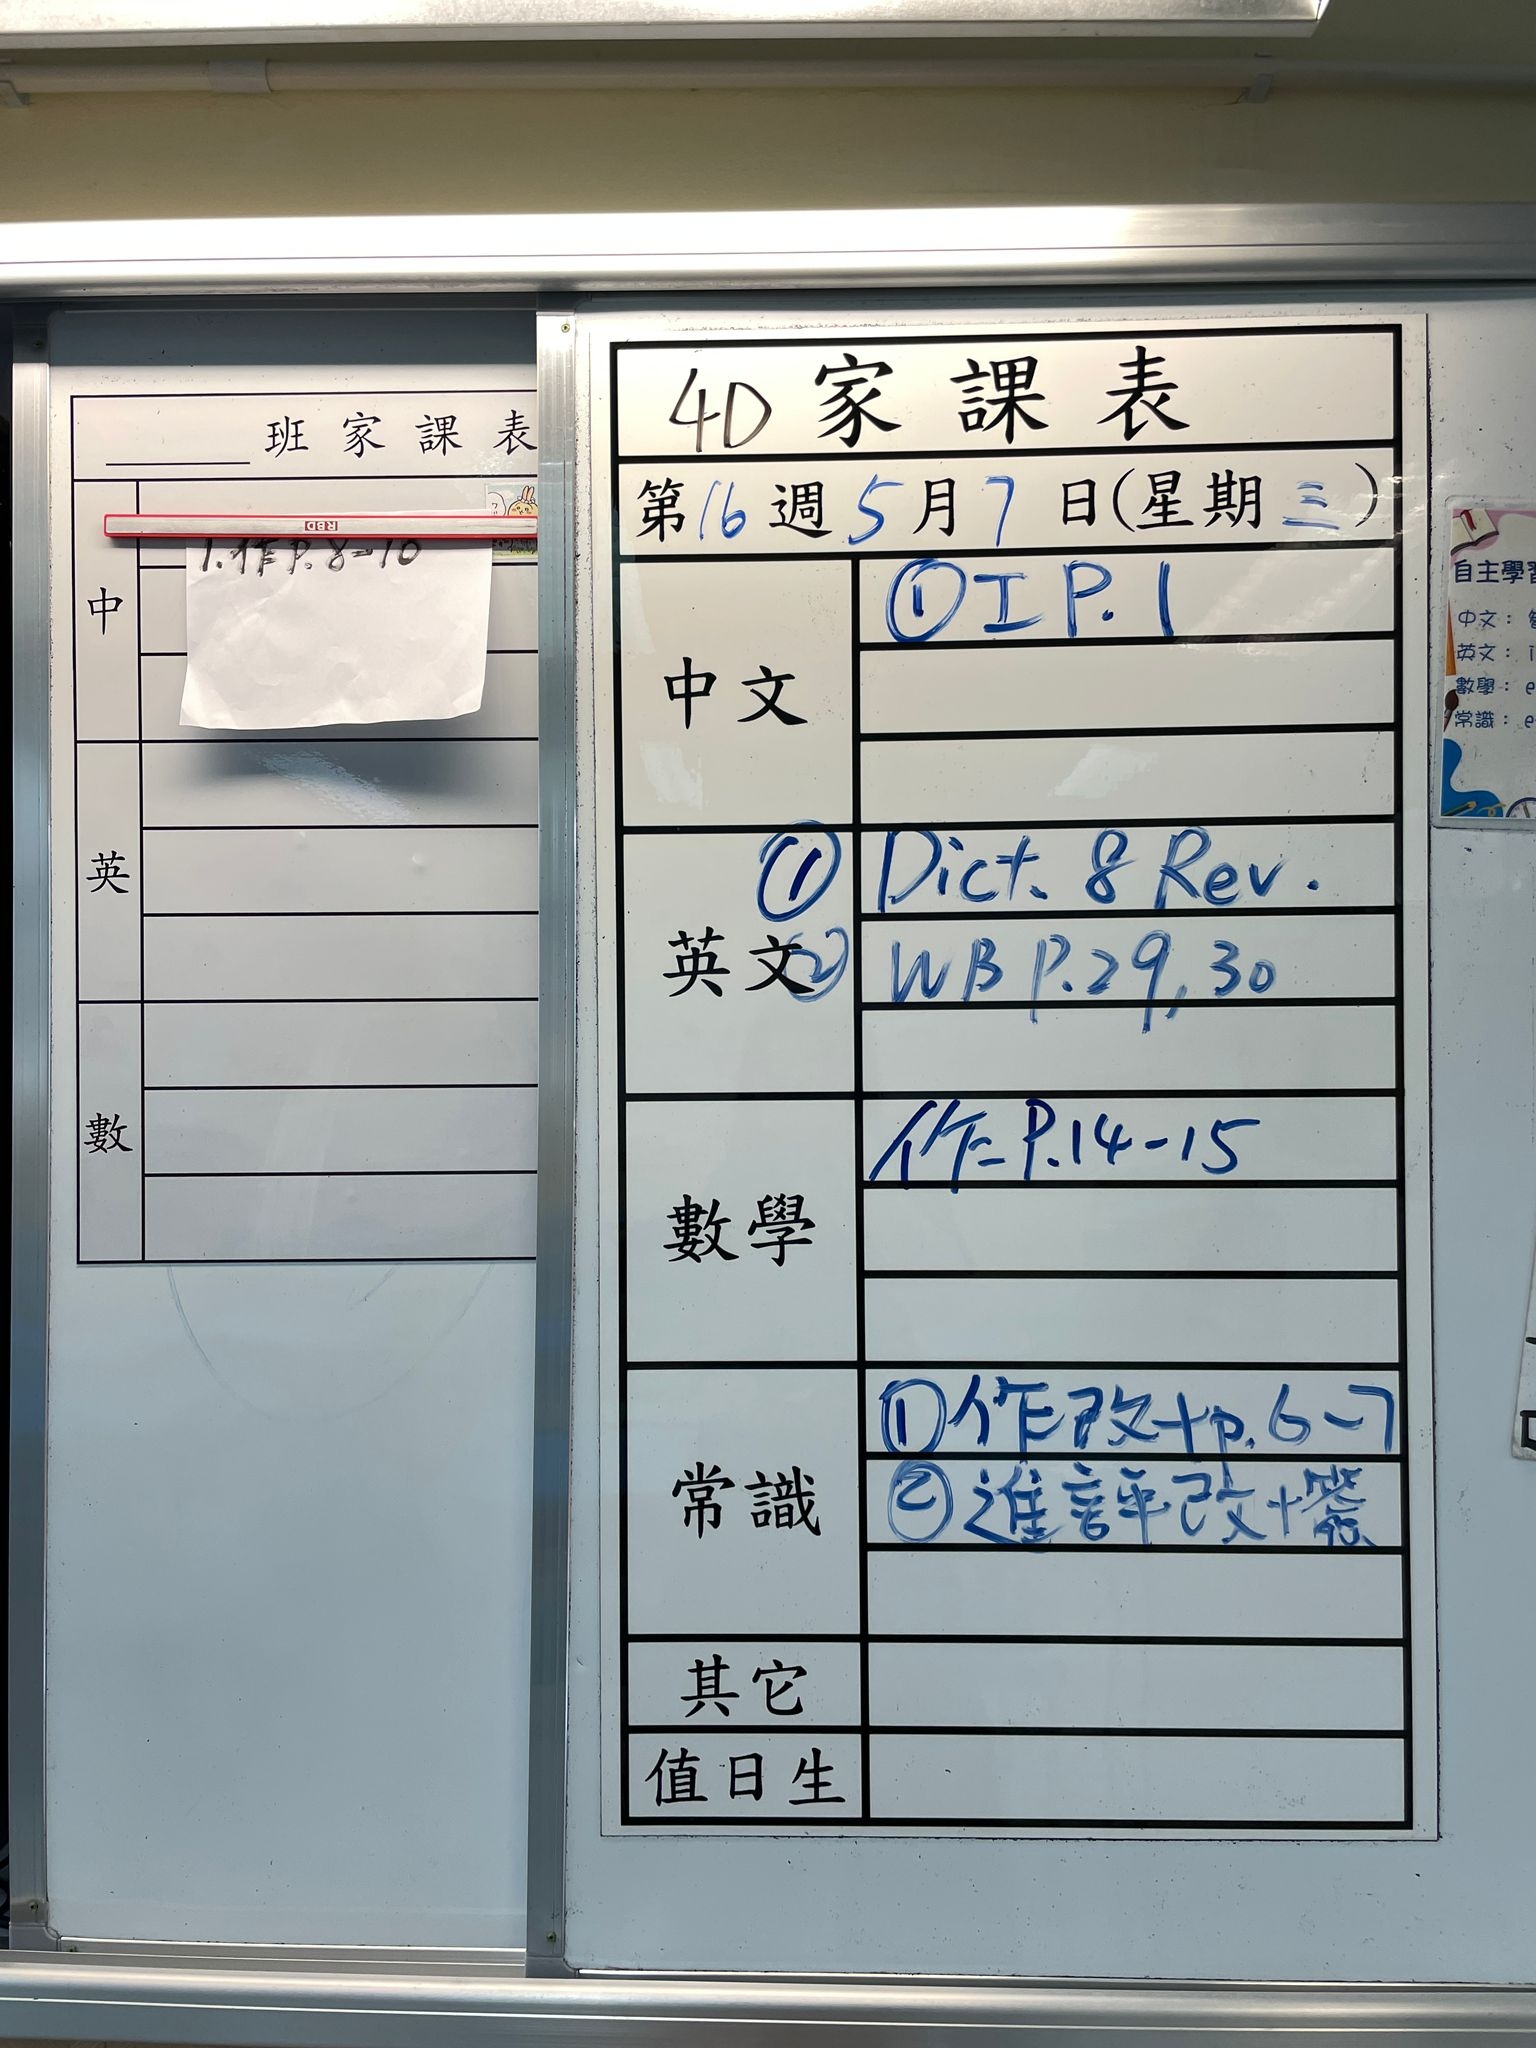 班家課表
RBD
1.作P.8-10
中
英
數
4D 家課表
第16週5月7日(星期三)
中文
①工P.1
英文
① Dict. 8 Rev.
② WB P.29,30
數學
作P.14-15
常識
①作改+p.6-7
②進評改+簽
其它
值日生
自主學習
中文：
英文：i
數學：e
常識：e